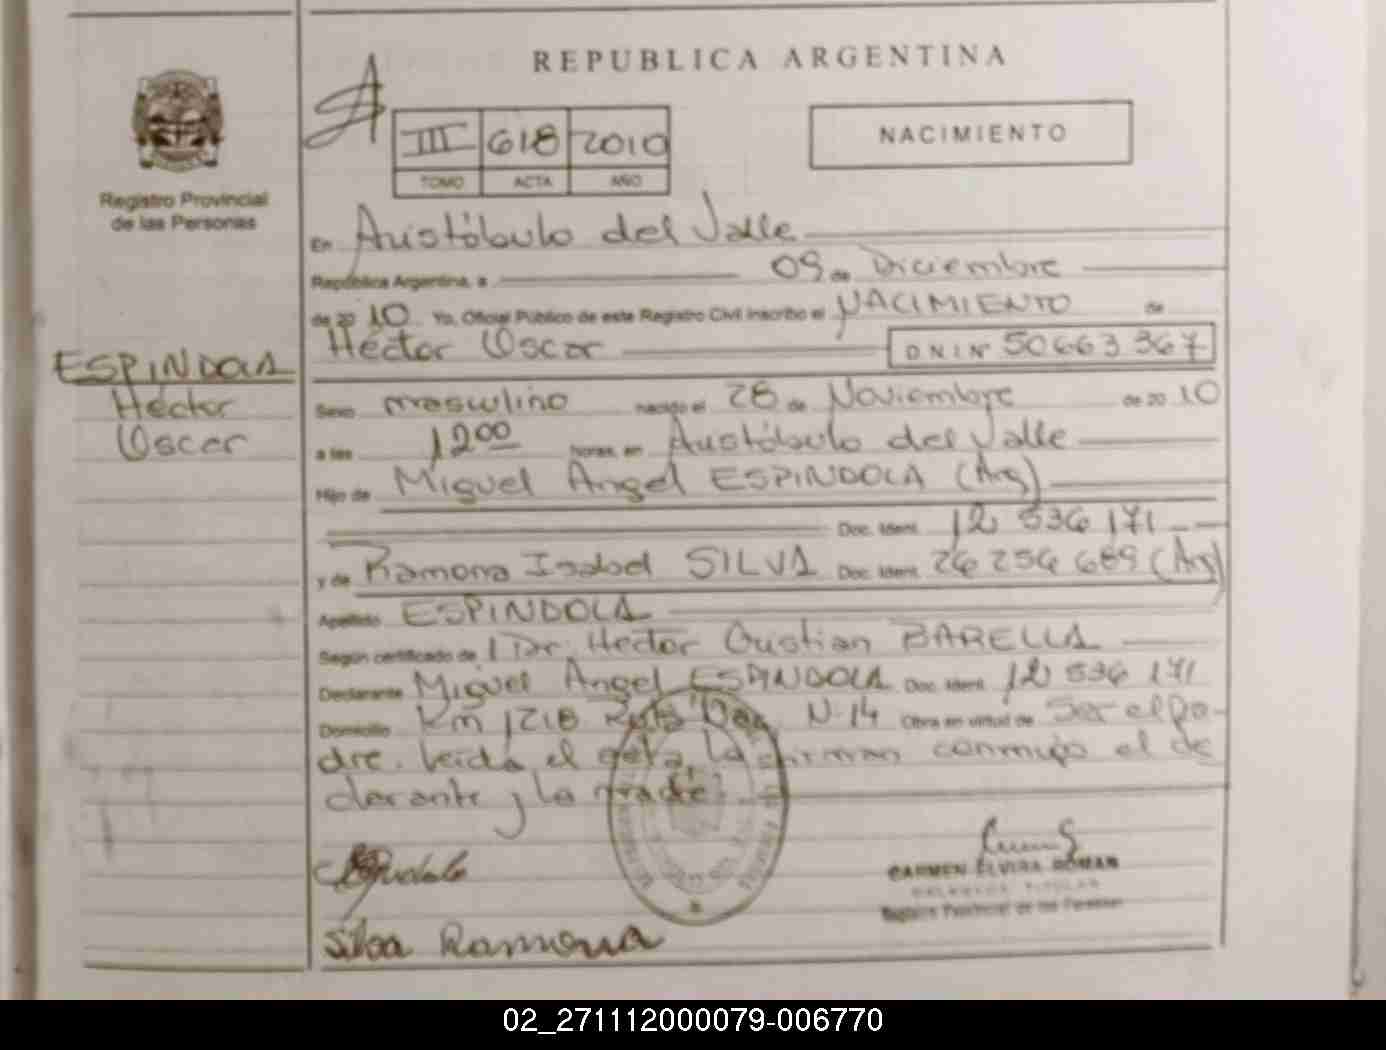 REPUBLICA ARGENTINA
III 618 2010
TOMO ACTA AÑO
NACIMIENTO
Registro Provincial
de las Personas
En Aristóbulo del Valle
República Argentina, a 09 de Diciembre
de 20 10 Yo, Oficial Público de este Registro Civil inscribo el NACIMIENTO de
Héctor Oscar DNI Nº 50663367
ESPINDOLA
Héctor
Oscar
Sexo masculino nacido el 28 de Noviembre de 20 10
a las 12 00 horas, en Aristóbulo del Valle
Hijo de Miguel Angel ESPINDOLA (Arg)
Doc. Ident. 12 536 171
y de Ramona Isabel SILVA Doc. Ident. 26 256 689 (Arg)
Apellido ESPINDOLA
Según certificado de l Dr. Hector Cristian BARELLA
Declarante Miguel Angel ESPINDOLA Doc. Ident. 12 536 171
Domicilio Km 1218 Ruta Nac N-14 Obra en virtud de ser el pa-
dre. Leida el acta, la firman conmigo el de
clarante y la madre
Silva Ramona
CARMEN ELVIRA ROMAN
DELEGADA TITULAR
Registro Provincial de las Personas
02_271112000079-006770